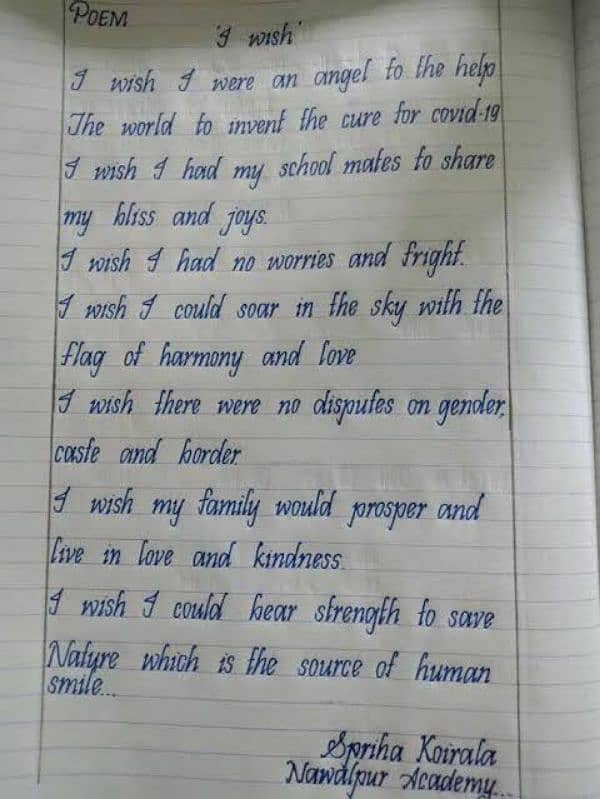 POEM
'I wish'
I wish I were an angel to the help
The world to invent the cure for covid-19
I wish I had my school mates to share
my bliss and joys.
I wish I had no worries and fright.
I wish I could soar in the sky with the
flag of harmony and love
I wish there were no disputes on gender,
caste and border.
I wish my family would prosper and
live in love and kindness.
I wish I could bear strength to save
Nature which is the source of human
smile...
Spriha Koirala
Nawalpur Academy...